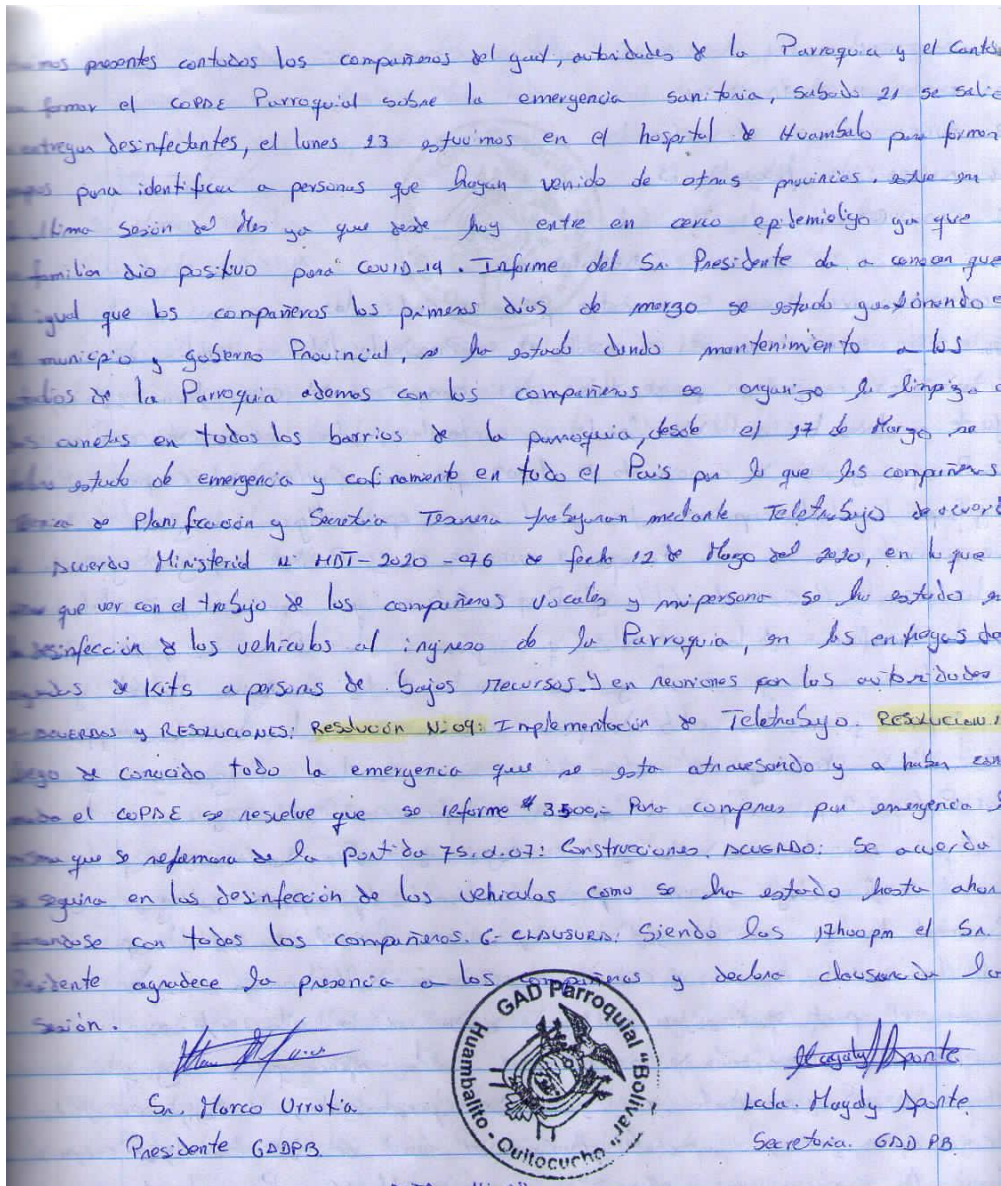 presentes contodos los compañeros del gad, autoridades de la Parroquia y el Cantón
formar el COPAE Parroquial sobre la emergencia sanitaria, sabado 21 se salio
entregar desinfectantes, el lunes 23 estuvimos en el hospital de Huambalo para formar
para identificar a personas que hayan venido de otras provincias. estre en
sesión del Mes ya que desde hoy entre en cerco epidemioligo ya que
familia dio positivo para COVID-19. Informe del Sr. Presidente da a conocer que
igual que los compañeros los primeros días de marzo se estado gestionando e
municipio y gobierno Provincial, se ha estado dando mantenimiento a los
de la Parroquia ademas con los compañeros se organizo la limpiza
cunetas en todos los barrios de la parroquia, desde el 17 de Marzo se
estado de emergencia y cofinamento en todo el Pais por lo que los compañeros
de Planificación y Secretria Tesorera trabajaran mediante Teletrabajo de acuerd
Acuerdo Ministerial N: MDT-2020-076 de fecha 12 de Mazo del 2020, en lo que
que ver con el trabajo de los compañeros vocales y mi persona se ha estados en
desinfección de los vehiculos al ingreso de la Parroquia, en las entregas de
de Kits a personas de bajos recursos. Y en reuniones por las autoridades
ACUERDOS y RESOLUCIONES: Resolución N:09: Implementación de Teletrabajo. RESOLUCION
de conocido todo la emergencia que se esta atravesando y a haber
el COPAE se resuelve que se reforme $3500,= Para compras por emergencia
que se reformara de la partida 75.01.07: Construcciones. ACUERDO: Se acuerda
seguira en las desinfección de los vehiculos como se ha estado hasta ahora
con todos los compañeros. 6- CLAUSURA: Siendo las 17h00pm el Sr.
agradece la presencia a los compañeros y declara clausurada la
Sesión.
GAD Parroquial "Bolívar"
Huambalito - Quitocucho
Sr. Marco Urrutia
Lcda. Magaly Aponte
Presidente GADPB.
Secretaria. GAD PB.